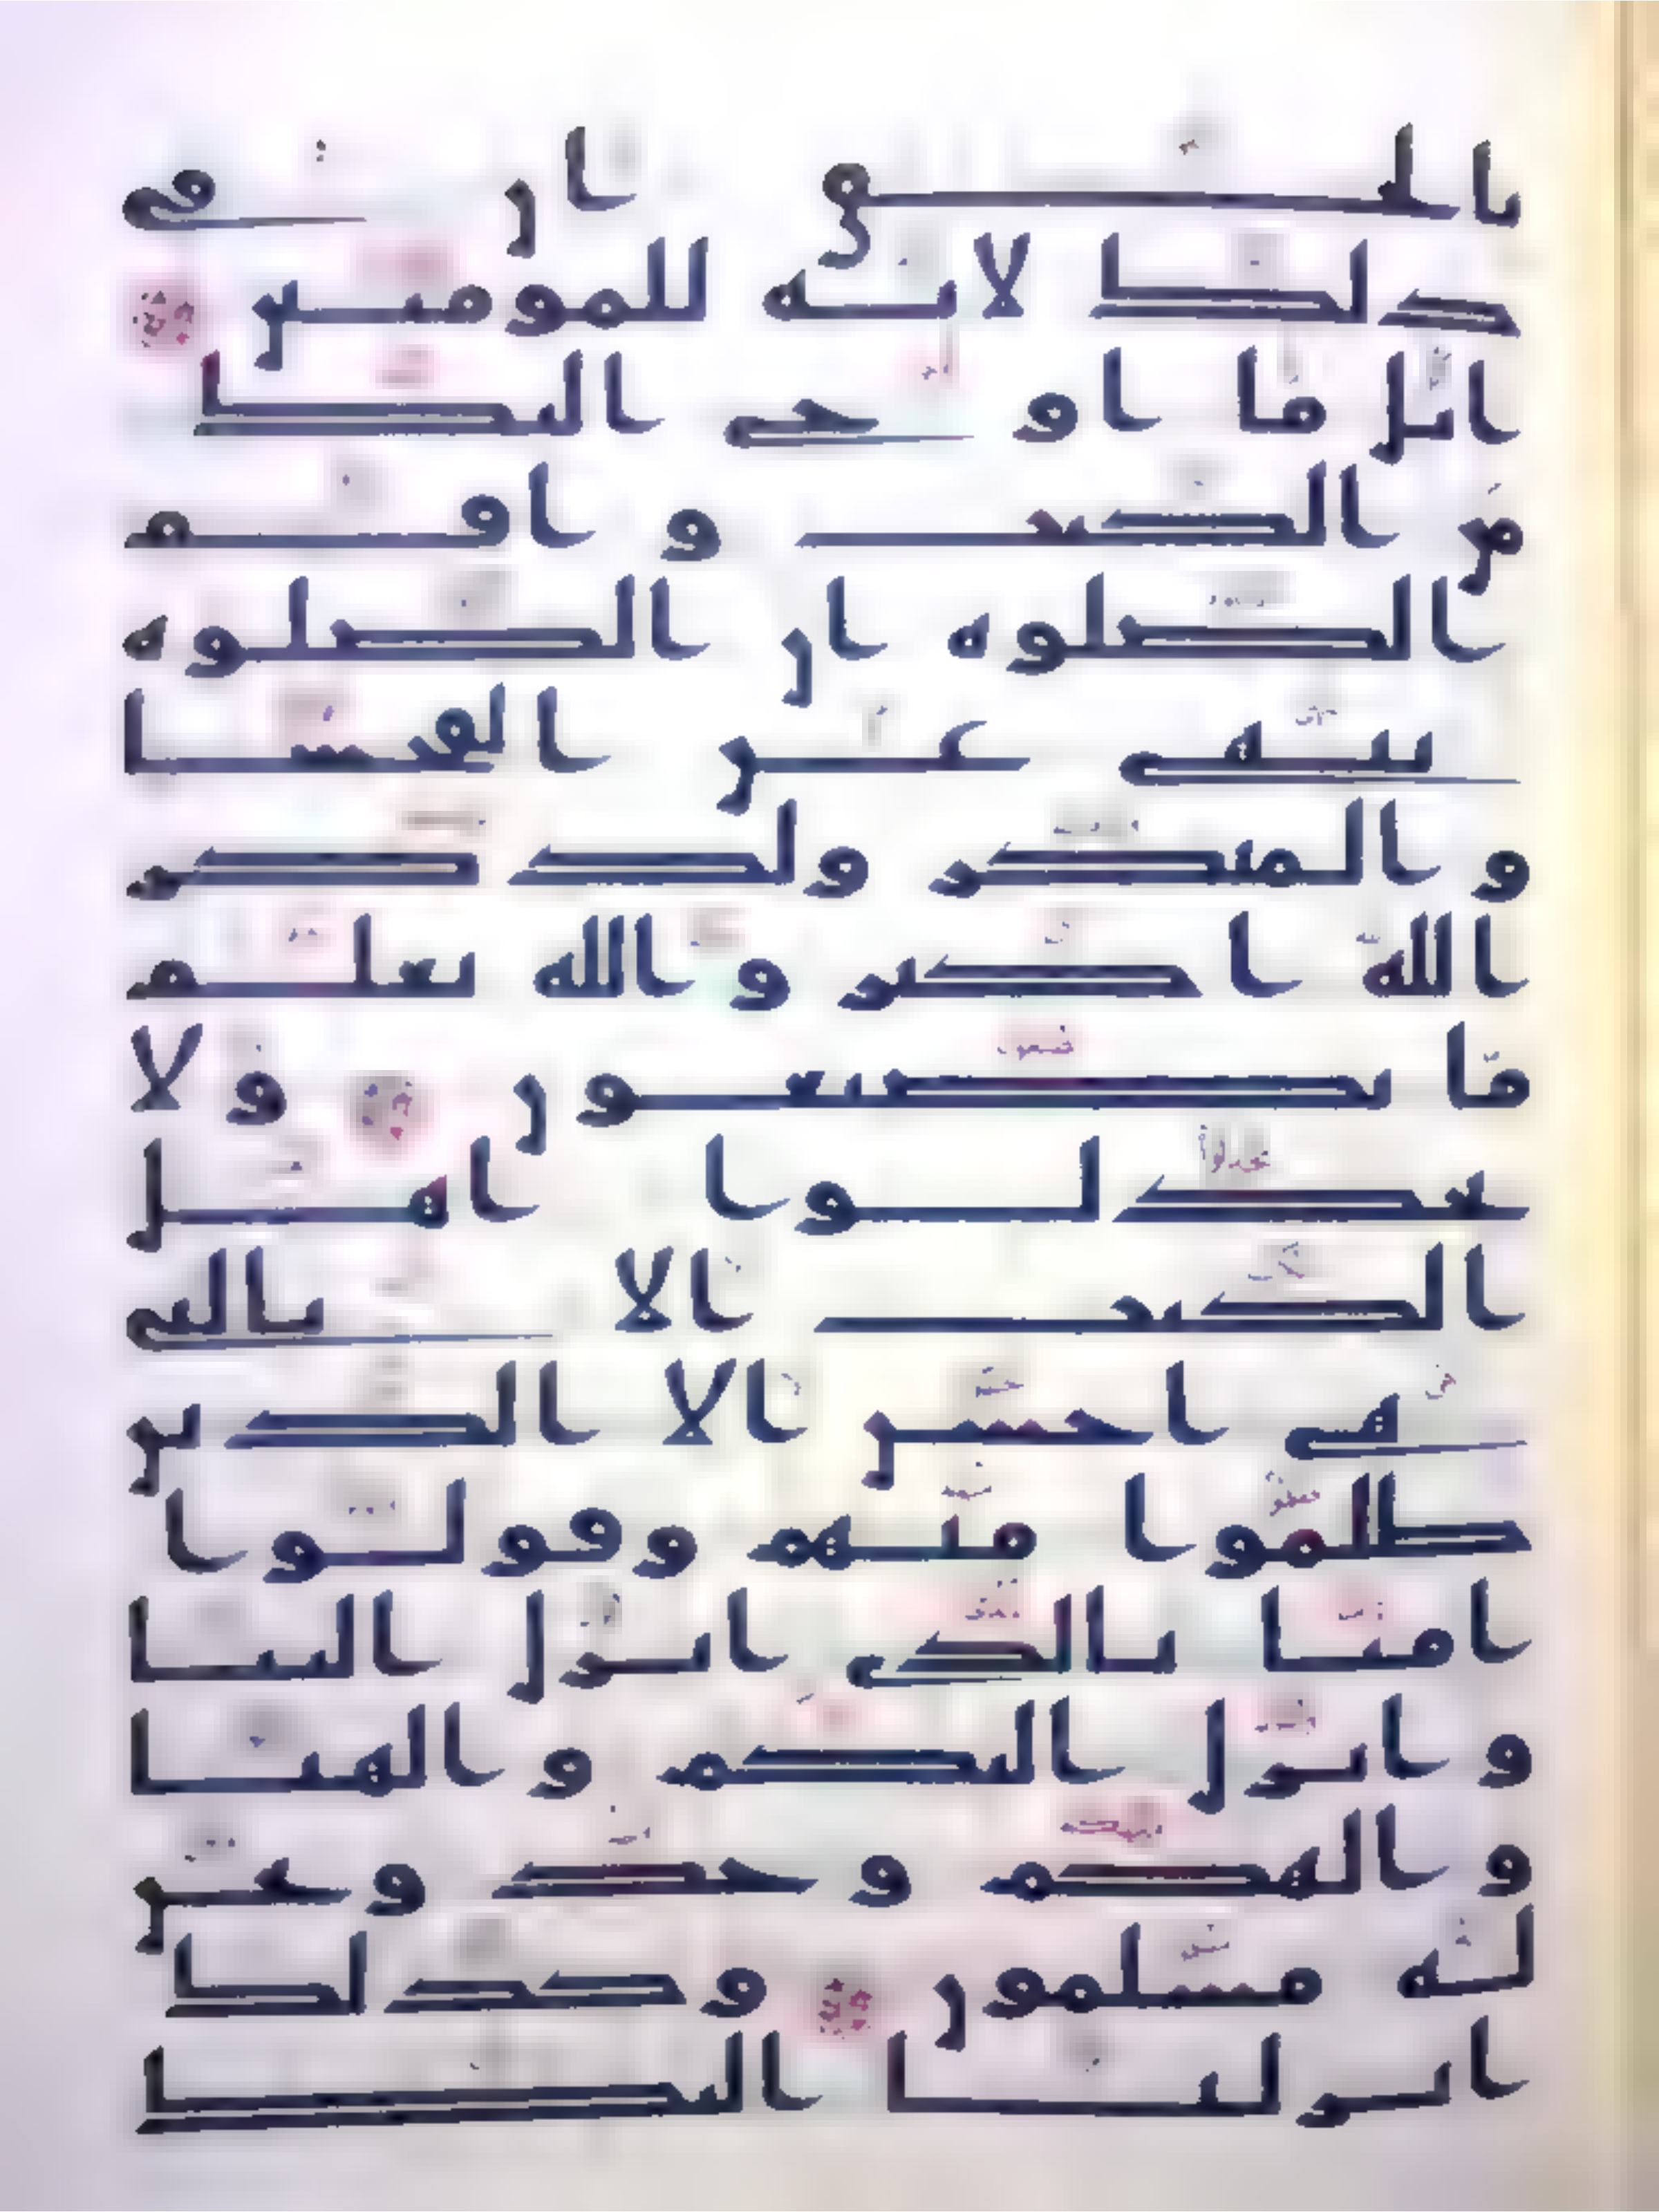 بالحق ان في
ذلك لاية للمومنين
اتل ما اوحي اليك
من الكتب واقم
الصلوة ان الصلوة
تنهى عن الفحشا
والمنكر ولذكر
الله اكبر والله يعلم
ما تصنعون ولا
تجدلوا اهل
الكتب الا بالتي
هي احسن الا الذين
ظلموا منهم وقولوا
امنا بالذي انزل الينا
وانزل اليكم والهنا
والهكم وحد ونحن
له مسلمون وكذلك
انزلنا اليك